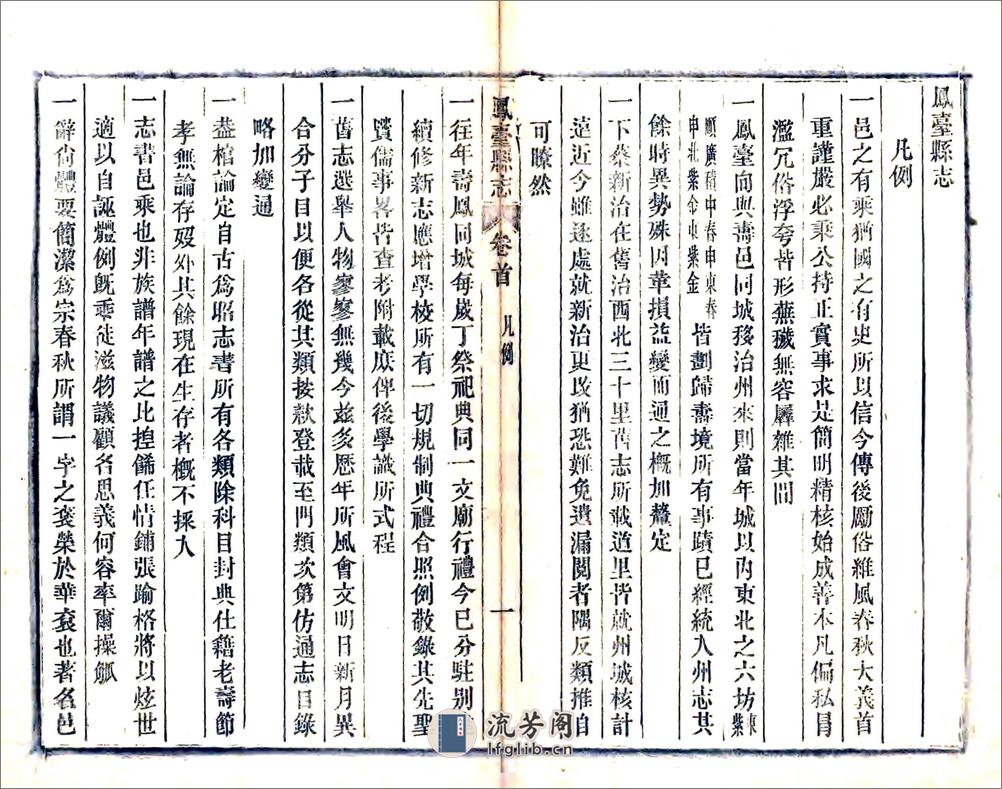 鳳臺縣志
凡例
一邑之有乘猶國之有史所以信今傳後勵俗維風春秋大義首
重謹嚴必秉公持正實事求是簡明精核始成善本凡偏私冒
濫冗俗浮夸皆形蕪穢無容羼雜其間
一鳳臺向與壽邑同城移治州來則當年城以內東北之六坊東紫
順廣積中春申東春
申北紫金東紫金
皆劃歸壽境所有事蹟已經統入州志其
餘時異勢殊因革損益變而通之概加釐定
一下蔡新治在舊治西北三十里舊志所載道里皆就州城核計
遠近今雖逐處就新治更改猶恐難免遺漏閱者隅反類推自
可瞭然
鳳臺縣志 卷首 凡例 一
一往年壽鳳同城每歲丁祭祀典同一文廟行禮今已分駐別
續修新志應增學校所有一切規制典禮合照例敬錄其先聖
賢儒事畧皆查考附載庶俾後學識所式程
一舊志選舉人物寥寥無幾今茲多歷年所風會文明日新月異
合分子目以便各從其類挨款登載至門類次第仿通志目錄
略加變通
一蓋棺論定自古為昭志書所有各類除科目封典仕籍老壽節
孝無論存歿外其餘現在生存者概不採入
一志書邑乘也非族譜年譜之比揑飾任情鋪張踰格將以炫世
適以自誣體例既乖徒滋物議顧名思義何容率爾操觚
一辭尙體要簡潔為宗春秋所謂一字之褒榮於華袞也著名邑
流芳阁
lfglib.cn